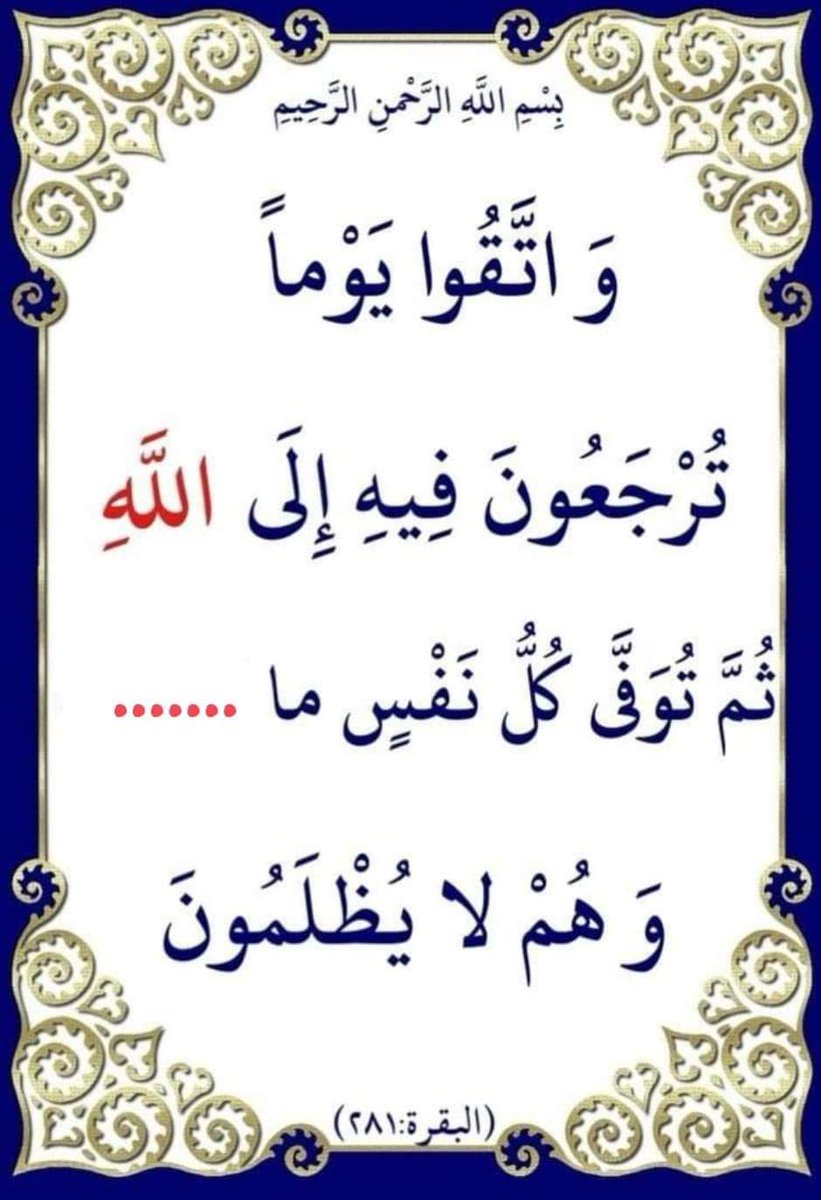 بِسْمِ اللَّهِ الرَّحْمنِ الرَّحِيمِ
وَ اتَّقُوا يَوْماً
تُرْجَعُونَ فِيهِ إِلَى اللَّهِ
ثُمَّ تُوَفَّى كُلُّ نَفْسٍ ما .......
وَ هُمْ لا يُظْلَمُونَ
(البقرة:٢٨١)